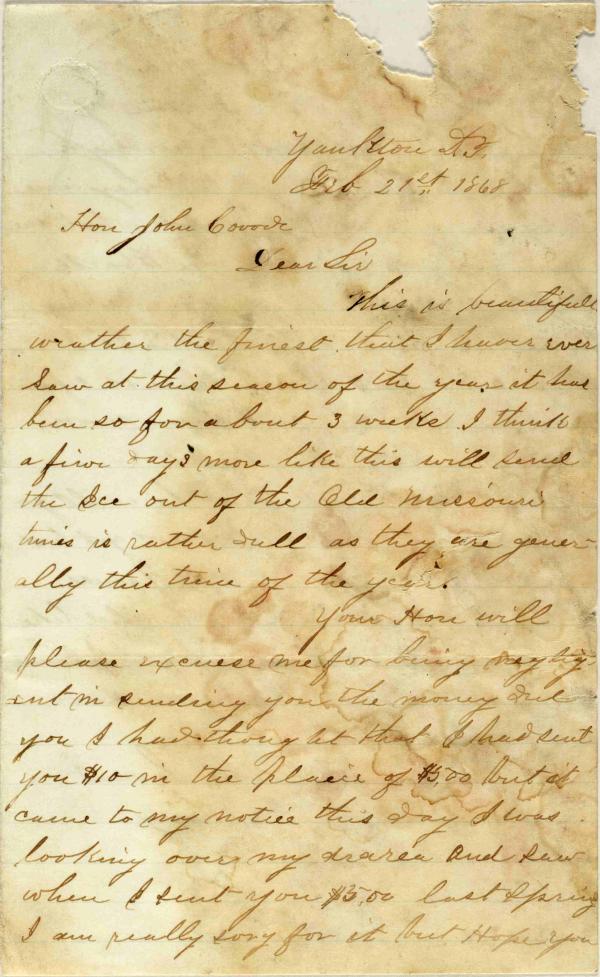 Yankton D.T.
Feb 21st, 1868
Hon John Covode
Dear Sir
This is beautifull
weather the finest that I haver ever
Saw at this season of the year it has
been so for about 3 weeks I think
a few days more like this will send
the Ice out of the Old Missouri
times is rather dull as they are gener-
ally this time of the year.
Your Hon will
please excuese me for being neglig-
ent in sending you the money due
you I had thought that I had sent
you $10 in the place of $5,00 but it
came to my notice this day I was
looking over my and saw
when I sent you $5,00 last Spring
I am really sory for it but Hope you